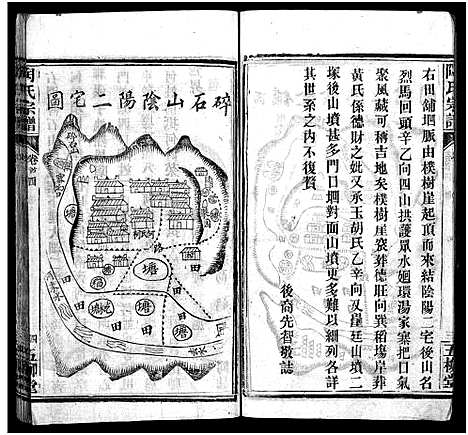 陶氏宗譜
右田舖垇脈由樸樹崖起頂而來結陰陽二宅後山名
烈馬回頭辛乙向四山拱護眾水廻環湯家寨把口氣
聚風藏可稱吉地矣樸樹崖塟德旺向巽稻塲崖葬
黃氏係德財之妣又承玉胡氏乙辛向又崖廷山墳二
塚後山墳甚多門口垇對面山墳更多難以細列各詳
其世系之內不復贅
後裔先智敬誌
五柳堂
碎石山陰陽二宅圖
塘
塘
塘
塘
田
田
田
田
田
田
陶氏宗譜
卷首四
四
五柳堂